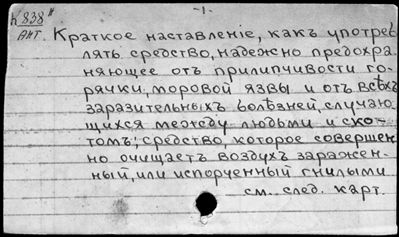 -1.
К 838
АНТ.
Краткое наставленіе, какъ употреб
лять средство, надежно предохра
няющее отъ прилипчивости го-
рячки, моровой язвы и отъ всѣхъ
заразительныхъ болѣзней, случаю-
щихся между людьми и ско-
томъ; средство, которое совершен
но очищаетъ воздухъ заражен-
ный, или испорченный гнилыми
см. след. карт.